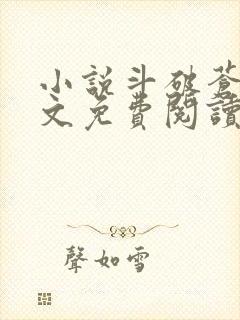 小說斗破蒼
文免費閱讀
聲如雪